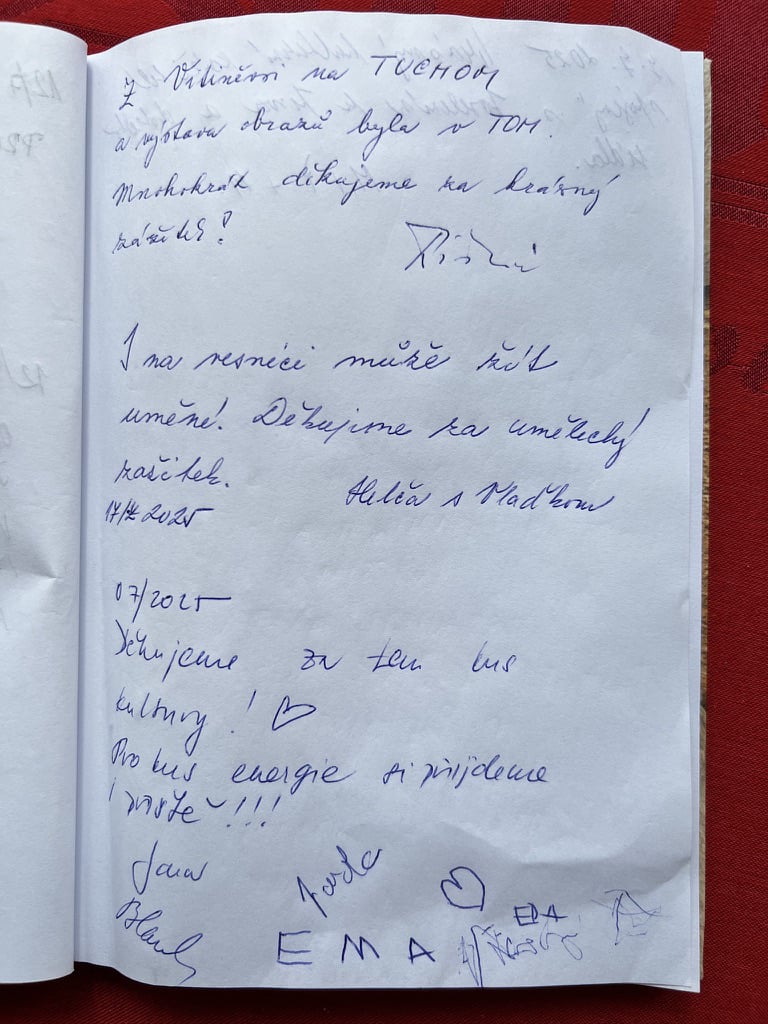 Z Vitiněvsi na TUCHOM
a výstava obrazů byla v TOM.
Mnohokrát děkujeme za krásný
zážitek!
I na vesnici může žít
umění! Děkujeme za umělecký
zašitek.
Helča s Vlaďkom
17/7 2025
07/2025
Děkujeme za ten kus
kultury!
Pro kus energie si přijdeme
i příště!!!
Jana
EMA
EDA